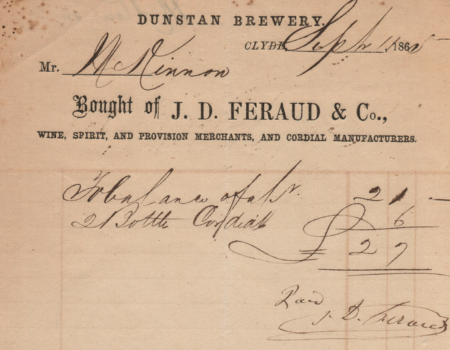 DUNSTAN BREWERY.
CLYDE, Sept 186
Mr. McKinnon
Bought of J. D. FERAUD & Co.,
WINE, SPIRIT, AND PROVISION MERCHANTS, AND CORDIAL MANUFACTURERS.
To balance of a/c 21 —
2 Bottle Cordial 6
£ 27
Paid
J. D. Feraud